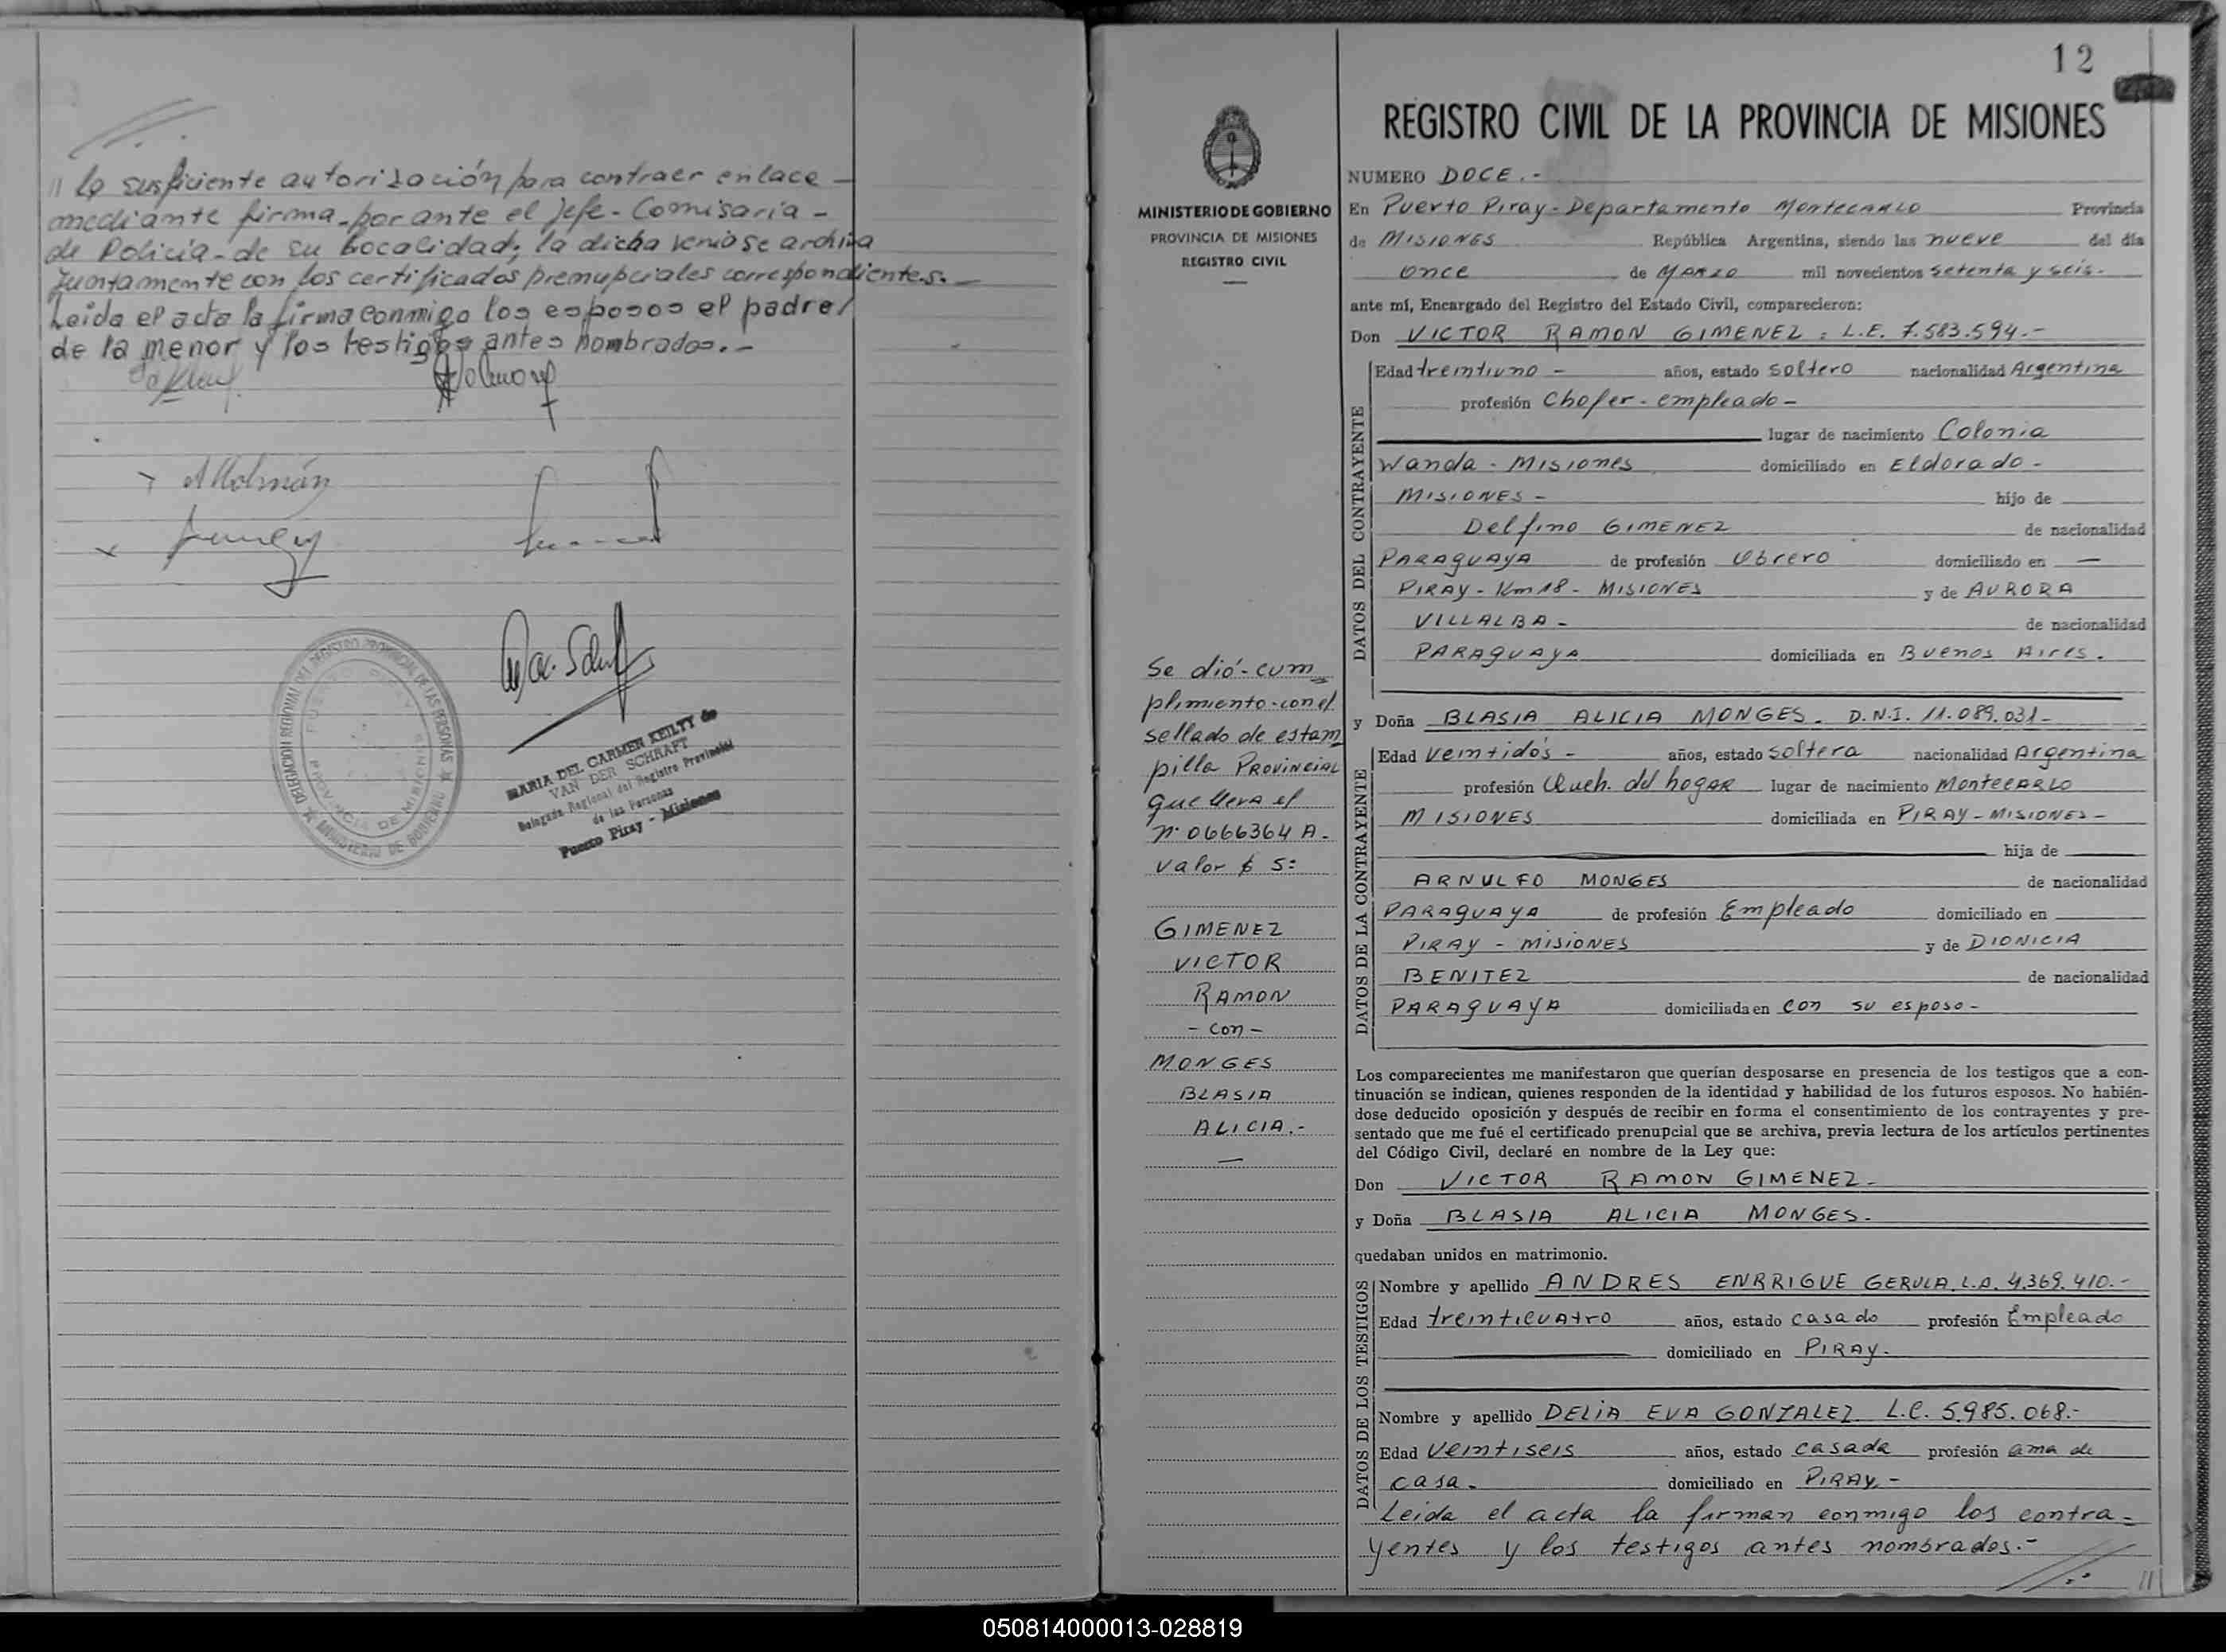 // la susficiente autorización para contraer enlace -
mediante firma - por ante el Jefe - Comisaría -
de Policía - de su Localidad; la dicha venia se archiva
Juntamente con los certificados prenupciales correspondientes. -
Leida el acta la firma conmigo los esposos el padre/
de la menor y los testigos antes nombrados. -
DELEGACION REGIONAL DEL REGISTRO PROVINCIAL DE LAS PERSONAS
MINISTERIO DE GOBIERNO
PUERTO PIRAY
PROVINCIA DE MISIONES
MARIA DEL CARMEN KEILTY de
VAN DER SCHRAFT
Delegada Regional del Registro Provincial
de las Personas
Puerto Piray - Misiones
12
MINISTERIO DE GOBIERNO
PROVINCIA DE MISIONES
REGISTRO CIVIL
Se dió - cum
plimiento - con el
sellado de estam
pilla PROVINCIAL
que lleva el
nº 0666364 A -
valor $ 5:
GIMENEZ
VICTOR
RAMON
- con -
MONGES
BLASIA
ALICIA. -
REGISTRO CIVIL DE LA PROVINCIA DE MISIONES
NUMERO DOCE. -
En Puerto Piray - Departamento MONTECARLO Provincia
de MISIONES República Argentina, siendo las nueve del día
once de MARZO mil novecientos setenta y seis -
ante mí, Encargado del Registro del Estado Civil, comparecieron:
Don VICTOR RAMON GIMENEZ : L.E. 7.583.594. -
DATOS DEL CONTRAYENTE
Edad treintiuno - años, estado soltero nacionalidad Argentina
profesión Chofer - empleado -
lugar de nacimiento Colonia
Wanda - Misiones domiciliado en Eldorado -
MISIONES - hijo de
Delfino GIMENEZ de nacionalidad
PARAGUAYA de profesión Obrero domiciliado en —
PIRAY - Km 18 - MISIONES y de AURORA
VILLALBA - de nacionalidad
PARAGUAYA domiciliada en Buenos Aires.
y Doña BLASIA ALICIA MONGES. D.N.I. 11.089.031 -
DATOS DE LA CONTRAYENTE
Edad veintidós - años, estado soltera nacionalidad Argentina
profesión Queh. del hogar lugar de nacimiento Montecarlo
MISIONES domiciliada en PIRAY - MISIONES -
hija de
ARNULFO MONGES de nacionalidad
PARAGUAYA de profesión Empleado domiciliado en
PIRAY - MISIONES y de DIONICIA
BENITEZ de nacionalidad
PARAGUAYA domiciliada en con su esposo -
Los comparecientes me manifestaron que querían desposarse en presencia de los testigos que a con-
tinuación se indican, quienes responden de la identidad y habilidad de los futuros esposos. No habién-
dose deducido oposición y después de recibir en forma el consentimiento de los contrayentes y pre-
sentado que me fué el certificado prenupcial que se archiva, previa lectura de los artículos pertinentes
del Código Civil, declaré en nombre de la Ley que:
Don VICTOR RAMON GIMENEZ -
y Doña BLASIA ALICIA MONGES.
quedaban unidos en matrimonio.
DATOS DE LOS TESTIGOS
Nombre y apellido ANDRES ENRRIGUE GERULA. 4.369.410. -
Edad treinticuatro años, estado casado profesión Empleado
domiciliado en PIRAY.
Nombre y apellido DELIA EVA GONZALEZ L.C. 5.985.068. -
Edad veintiseis años, estado casada profesión ama de
casa - domiciliado en PIRAY -
Leida el acta la firman conmigo los contra =
yentes y los testigos antes nombrados. -
//
050814000013-028819